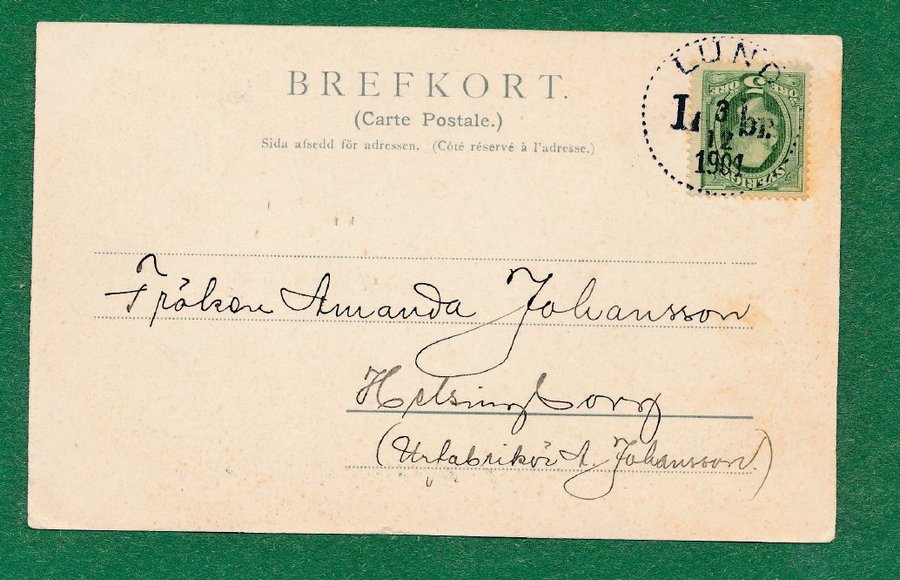 BREFKORT.
(Carte Postale.)
Sida afsedd för adressen. (Côté réservé à l'adresse.)
LUND
5 ÖRE
3
br.
12
1901
SVERIGE
Fröken Amanda Johansson
Helsingborg
(Urfabrikör A. Johansson.)